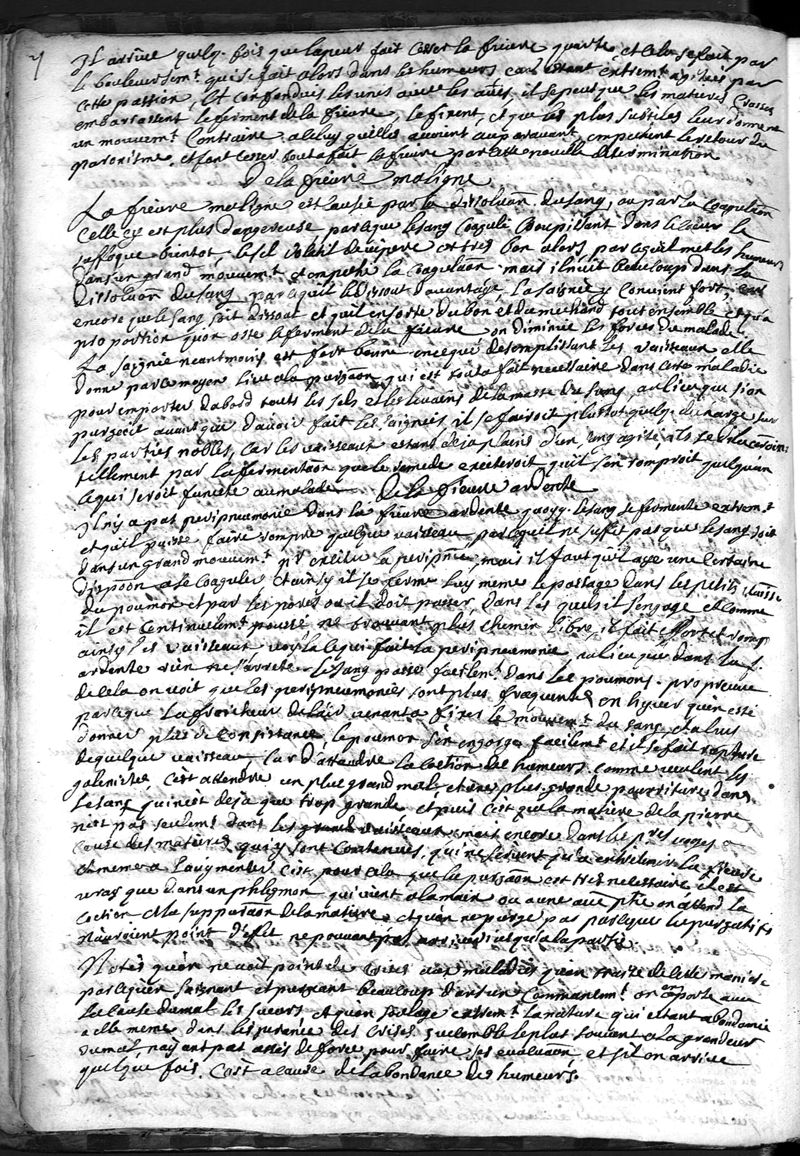 Il arrive quelq. fois que la peur fait cesser la fievre quarte et cela se fait par
le bouleversemt. qui se fait alors dans les humeurs car estant extremt. agitées par
cette passion, et confondues les unes avec les autres, il se peut que les matieres crasses
embarrassent le ferment de la fievre, le fixent, et que les plus subtiles leur donnent
un mouvemt. contraire a celuy quelles avoient auparavant, empechent le retour du
paroxisme, et font cesser tout a fait la fievre par cette nouvelle determination
De la fievre maligne
La fievre maligne est causée par la dissoluõn du sang, ou par la coagulaõn
celle cy est plus dangereuse parceque le sang coagulé croupissant dans le coeur le
suffoque bientot, le sel volatil de vipere est tres bon alors parcequil met les humeurs
dans un grand mouvemt. et empeche la coagulaõn mais il nuit beaucoup dans la
dissoluõn du sang parcequil le dissout davantage, la saignée y convient fort, car
encore que le sang soit dissout et quil en sorte du bon et du mechant tout ensemble et qu'a
proportion quon oste le ferment de la fievre on diminue les forces du malade,
La saignée neantmoins est fort bonne en ce que desemplissant les vaisseaux elle
donne par ce moyen lieu a la purgaõn qui est tout a fait necessaire dans cette maladie
pour emporter dabord touts les sels et les levains de la masse du sang, au lieu que si on
purgeoit avant que davoir fait les saignées, il se fairoit plustot quelq. decharge sur
les parties nobles, car les vaisseaux estans deja plains d'un sang agité, ils se
tellement par la fermentaõn que le remede exciteroit quil sen romproit quelquun
ce qui seroit funeste au malade De la fievre ardente
Il n'y a pas peripneumonie dans la fievre ardente quoyq. le sang se fermente extremt.
et quil puisse faire rompre quelque vaisseau parcequil ne suffit pas que le sang soit
dans un grand mouvemt. pr exciter la peripne, mais il faut quil aye une certaine
dispoõn a se coaguler et ainsy il se ferme luy meme le passage dans les petits vaisse
du poumon et par les pores ou il doit passer, dans les quels il s'engage et comme
il est continuellemt. poussé ne trouvant plus chemin libre, il fait effort et romp
ainsy les vaisseaux voyla ce qui fait la peripneumonie, au lieu que dans la f.
ardente rien ne l'arreste le sang passe facilemt. dans les poumons. pr preuve
de cela on voit que les peripneumonies sont plus frequentes en hyver qu'en esté
parceque la froideur de l'air venant a fixer le mouvemt. du sang et a luy
donner plus de consistance, le poumon s'en engorge facilemt. et il se fait rupture
de quelque vaisseau, Car d'attendre la coction des humeurs comme veulent les
galenistes, c'est attendre un plus grand mal, et une plus grande pourriture dans
le sang qui n'est deja que trop grande et puis c'est que la matiere de la fievre
n'est pas seulemt. dans les grands vaisseaux mais encore dans les pres voyes a
cause des matieres qui y sont contenues, qui ne servent qu'a entretenir la fievre
et meme a l'augmenter c'est pour cela que la purgaõn est tres necessaire il est
vray que dans un phlegmon qui vient a la main ou a une autre ptie on attend la
coction et la suppuraõn de la matiere et quon ne purge pas parceque les purgatifs
n'auroient point d'effet ne pouvant pas arriver jusqu'a la partie.
Notés quon ne voit point de crises aux maladies quon traite de cette maniere
parcequen saignant et purgeant beaucoup dans un commancemt. on emporte
la cause du mal les sueurs et quon soulage extremt. la nature qui estant abandonnée
a elle meme dans les des crises succombe le plus souvent a la grandeur
du mal, n'ayant pas assés de force pour faire ses evacuaõn et s'il en arrive
quelque fois. c'est a cause de labondance des humeurs.